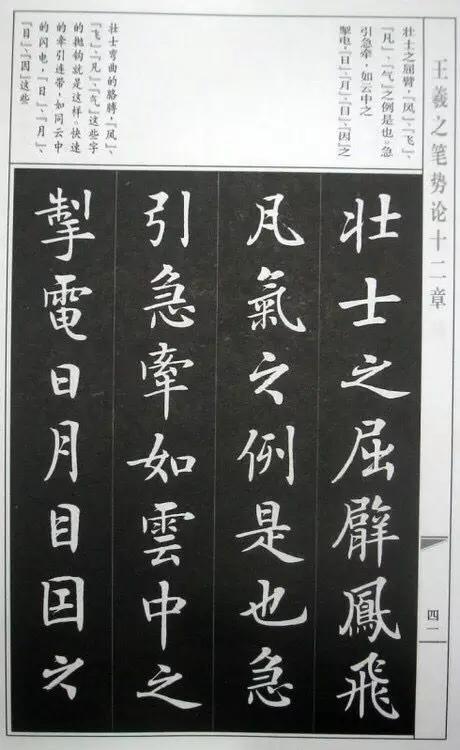 王羲之笔势论十二章
壮士之屈臂,『凤』、『飞』、
『凡』、『气』之例是也。急
引急牵,如云中之
掣电,『日』、『月』、『目』、『因』之
壮士弯曲的胳膊,『凤』、
『飞』、『凡』、『气』这些字
的抛钩就是这样。快速
的牵引连带,如同云中
的闪电,『日』、『月』、
『目』、『因』这些
壯士之屈臂鳳飛
凡氣之例是也急
引急牽如雲中之
掣電日月目因之
四一